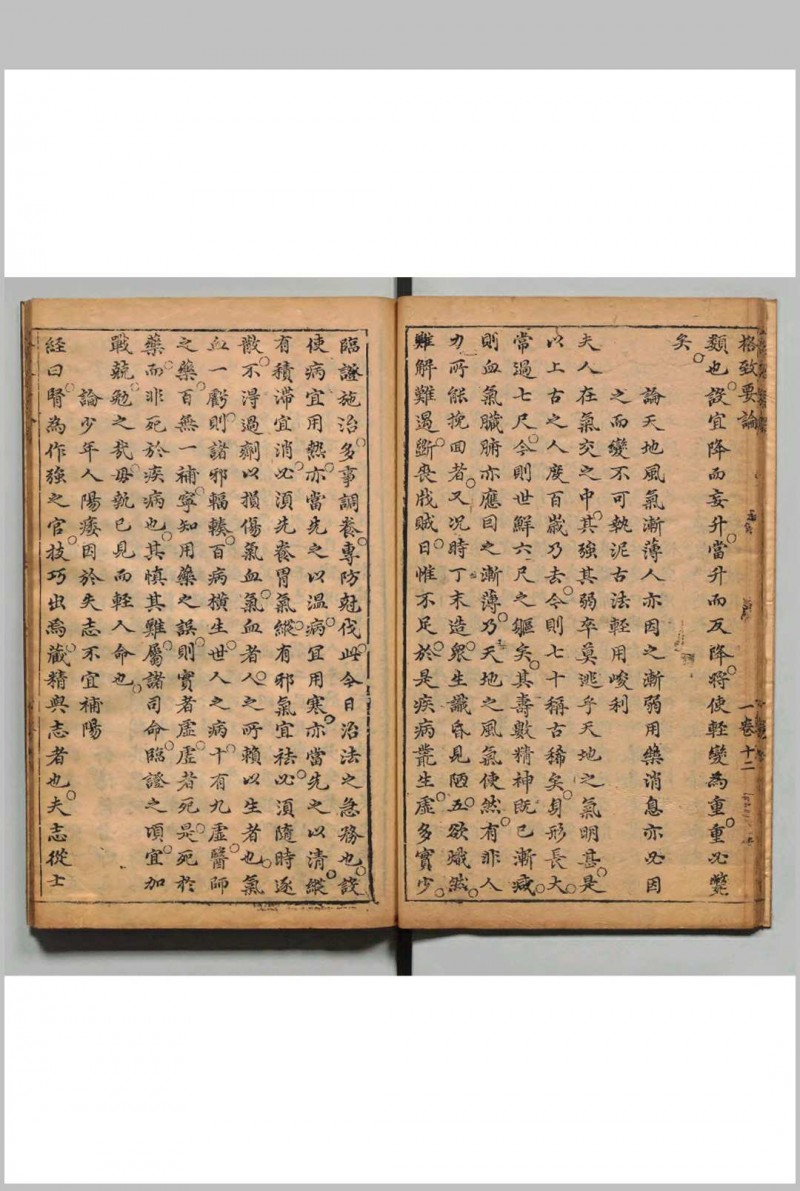 格致要論 一卷 十二
類也。設宜降而妄升。當升而反降。將使輕變為重。重必斃
矣。
論天地風氣漸薄人亦因之漸弱用藥消息亦必因
之而變不可執泥古法輕用峻利
夫人在氣交之中。其強其弱卒莫逃乎天地之氣明甚。是
以上古之人度百歲乃去。今則七十稱古稀矣。身形長大。
常過七尺。今則世鮮六尺之軀矣。其壽數精神既已漸減。
則血氣臟腑亦應同之漸薄。乃天地之風氣使然。有非人
力所能挽回者。又況時丁末造。眾生識昏見陋。五欲熾然。
難解難遏。斷喪戕賊。日惟不足。於是疾病叢生。虛多實少。
臨證施治。多事調養。專防尅伐。此今日治法之急務也。設
使病宜用熱。亦當先之以溫。病宜用寒。亦當先之以清。縱
有積滯宜消。必須先養胃氣。縱有邪氣宜祛。必須隨時逐
散。不得過劑以損傷氣血。氣血者。人之所賴以生者也。氣
血一虧。則諸邪輻輳。百病橫生。世人之病。十有九虛。醫師
之藥。百無一補。寧知用藥之誤。則實者虛。虛者死。是死於
藥而非死於疾病也。其慎其難。屬諸司命。臨證之頃。宜加
戰兢。勉之哉。毋執已見而輕人命也。
論少年人陽痿因於失志不宜補陽
經曰腎為作強之官。技巧出焉。藏精與志者也。夫志從士